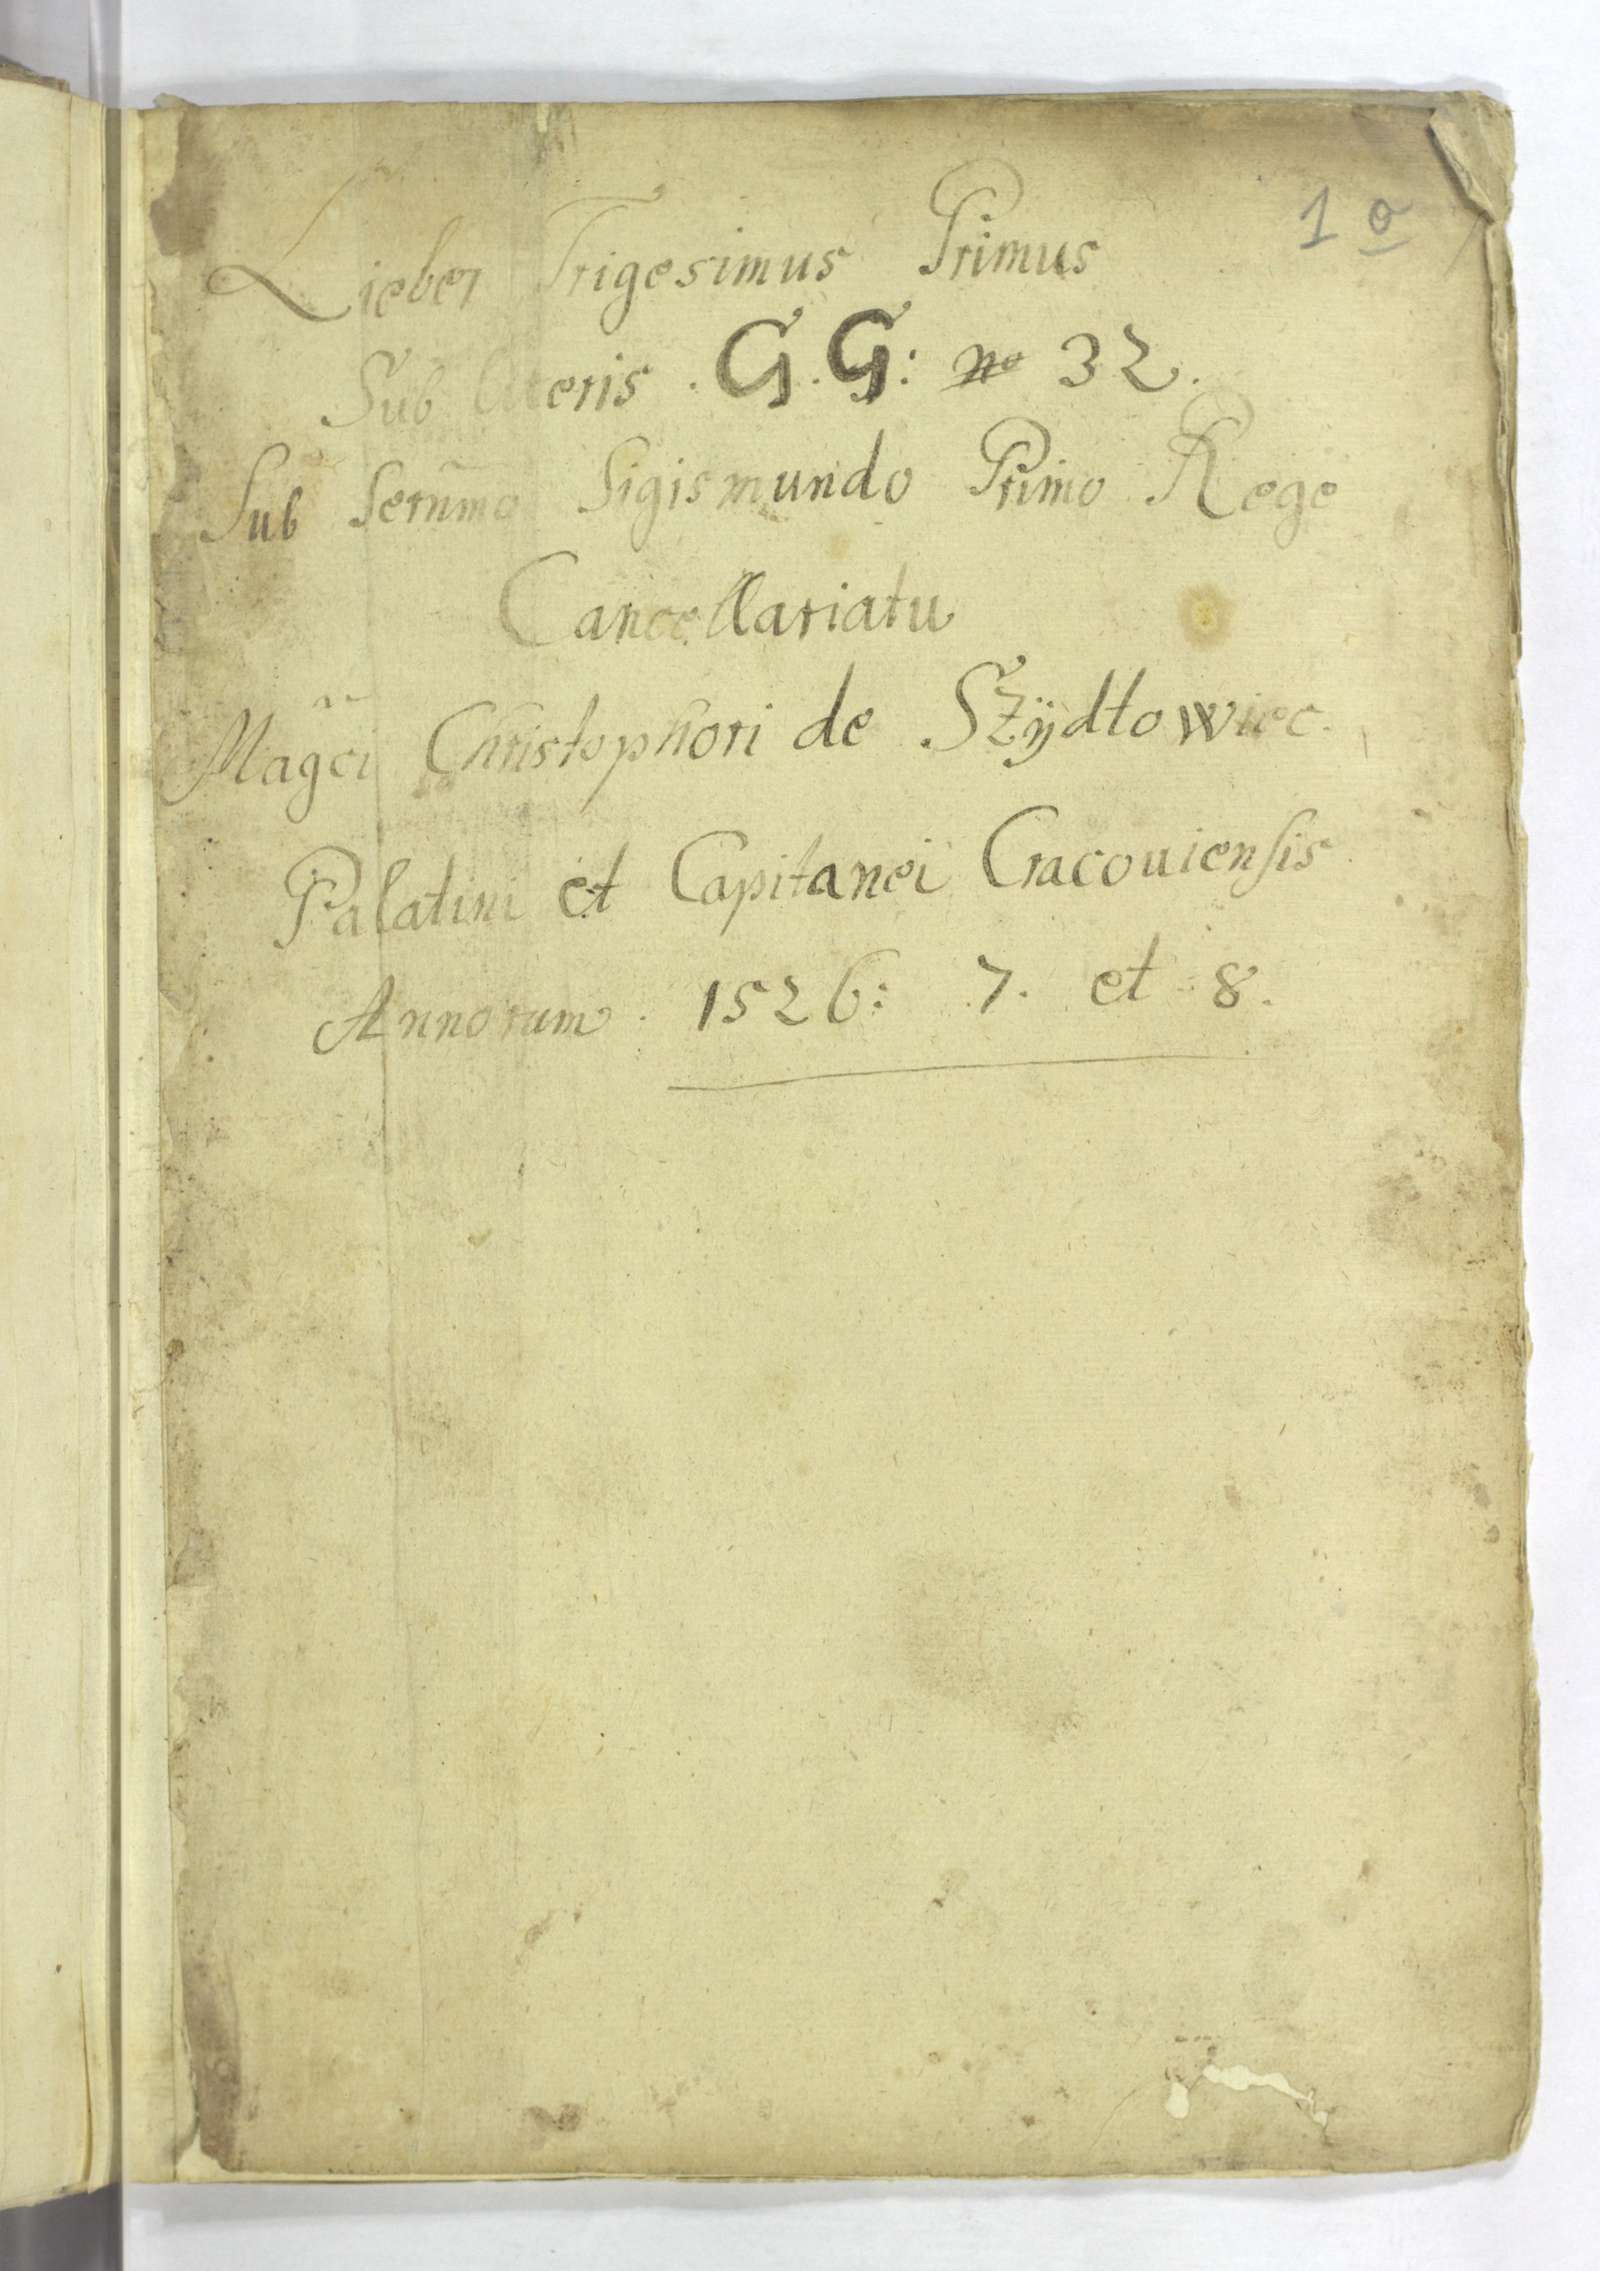 1 a
Lieber Trigesimus Primus
Sub literis . G . G : no 32 .
Sub Serñmo Sigismundo Primo Rege
Cancellariatu
Magc̃i Christophori de Szÿdłowiec .
Palatini et Capitanei Cracouiensis
Annorum . 1526 : 7 . et 8 .